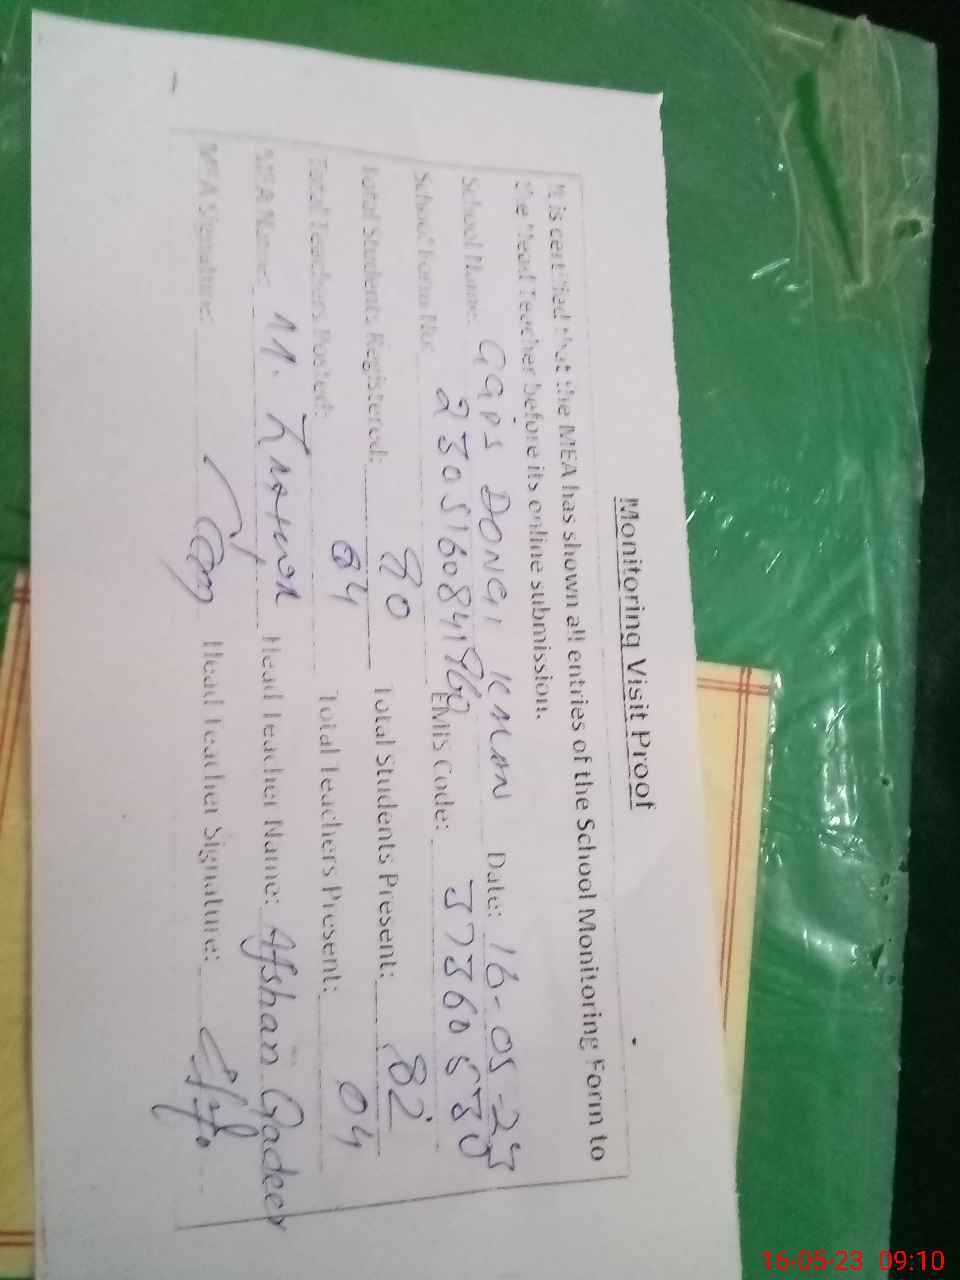 Monitoring Visit Proof
It is certified that the MEA has shown all entries of the School Monitoring Form to
the Head Teacher before its online submission.
School Name: GGPS DONGI KMAN Date: 16-05-23
School Form No: EMIS Code:
Total Students Registered: 90 Total Students Present: 82
Total Teachers Posted: 04 Total Teachers Present: 04
MEA Name: M. Head Teacher Name: Afshan Qadeer
MEA Signature: Head Teacher Signature:
16-05-23 09:10